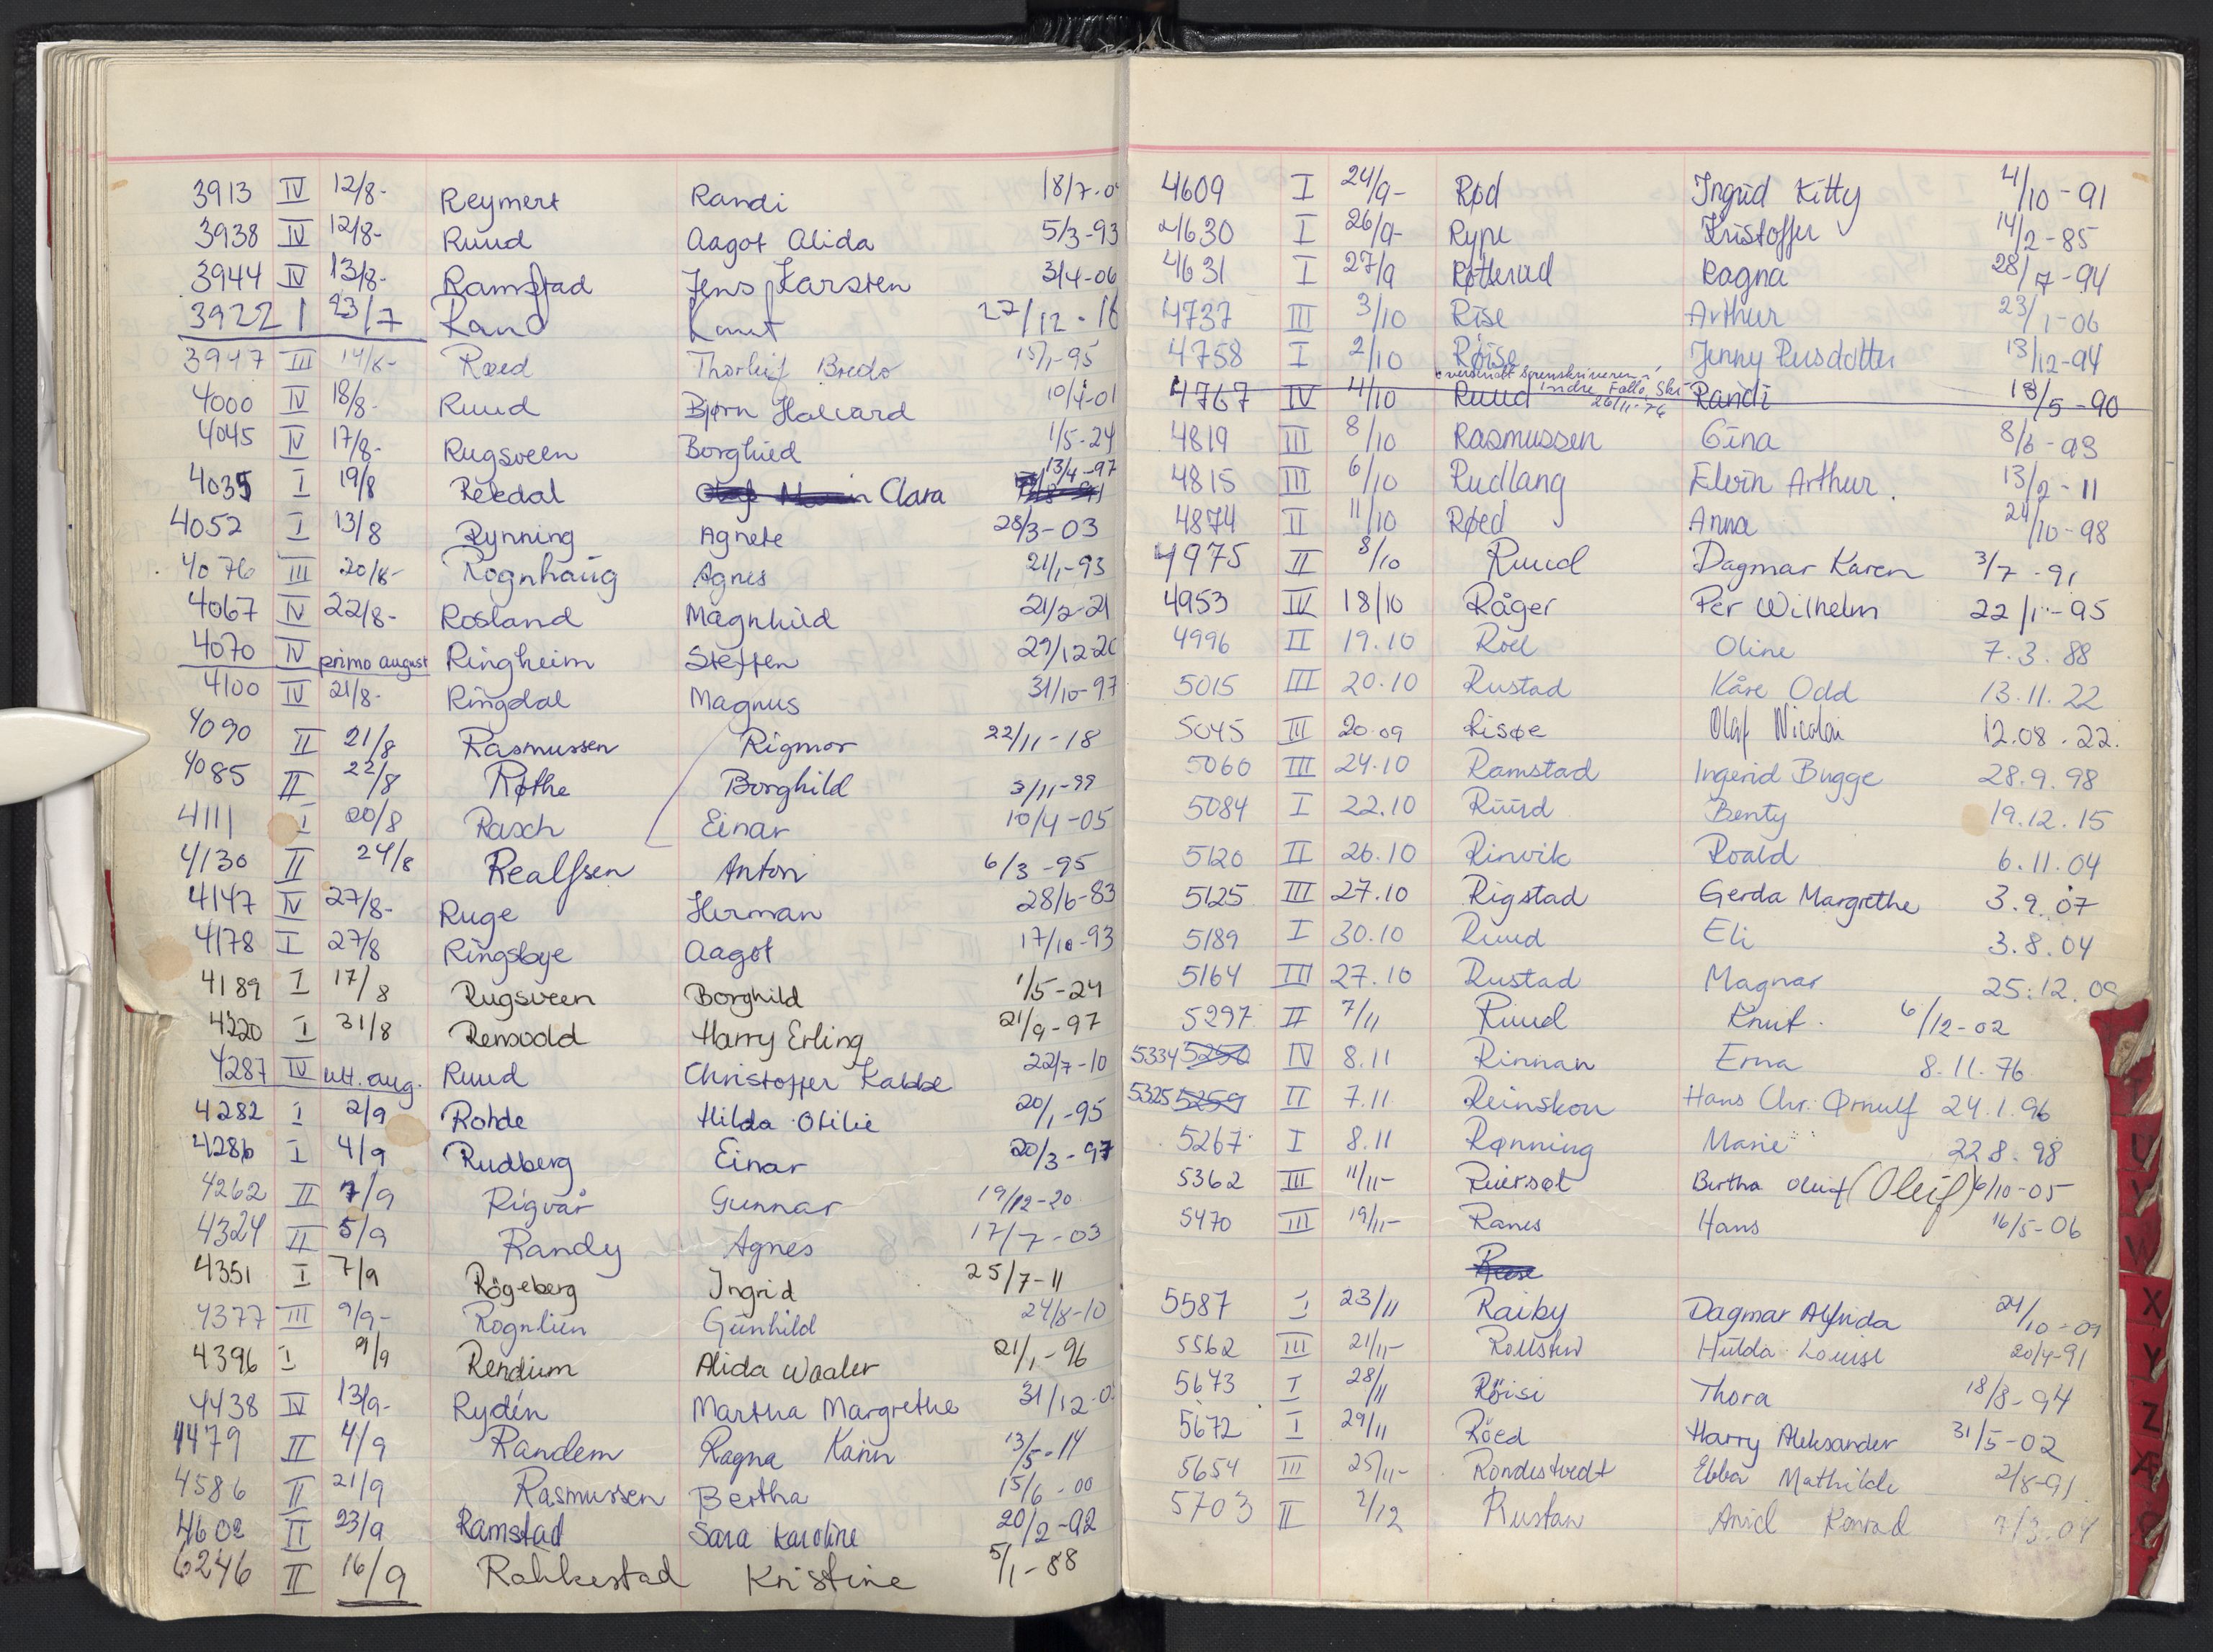 3913 IV 12/8- Reymert Randi 18/7-0
3938 IV 12/8- Ruud Aagot Alida 5/3-93
3944 IV 13/8- Ramstad Jens Karsten 3/4-06
3922 I 23/7 Rand Knut 27/12-16
3947 III 14/8- Roed Thorleif Bredo 15/1-95
4000 IV 18/8- Ruud Bjørn Halvard 10/4-01
4045 IV 17/8- Rugsveen Borghild 1/5-24
4035 I 19/8 Rekdal Clara 13/4-97
4052 I 13/8 Rynning Agnete 28/3-03
4076 III 20/8- Rognhaug Agnes 21/1-93
4067 IV 22/8- Rosland Magnhild 21/2-21
4070 IV primo august Ringheim Steffen 29/12-20
4100 IV 21/8- Ringdal Magnus 31/10-97
4090 II 21/8 Rasmussen Rigmor 22/11-18
4085 II 22/8 Røthe Borghild 3/11-99
4111 I 20/8 Rasch Einar 10/4-05
4130 II 24/8 Realfsen Anton 6/3-95
4147 IV 27/8- Ruge Herman 28/6-83
4178 I 27/8 Ringsbye Aagot 17/10-93
4189 I 17/8 Rugsveen Borghild 1/5-24
4220 I 31/8 Rensvold Harry Erling 21/9-97
4287 IV ult. aug. Ruud Christoffer Kabbe 22/7-10
4282 I 2/9 Rohde Hilda Otilie 20/1-95
4286 I 4/9 Rudberg Einar 20/3-97
4262 II 7/9 Rigvår Gunnar 19/12-20
4324 II 5/9 Randy Agnes 17/7-03
4351 I 7/9 Rögeberg Ingrid 25/7-11
4377 III 9/9- Rognlien Gunhild 24/8-10
4396 I 9/9 Rendum Alida Waaler 21/1-96
4438 IV 13/9- Rydén Martha Margrethe 31/12-0
4479 II 4/9 Randem Ragna Karin 13/5-14
4586 II 21/9 Rasmussen Bertha 15/6-00
4602 II 23/9 Ramstad Sara Karoline 20/2-92
6246 II 16/9 Rahkestad Kristine 5/1-88
4609 I 24/9- Rød Ingrid Kitty 4/10-91
4630 I 26/9- Rype Kristoffer 14/2-85
4631 I 27/9 Røtterud Ragna 28/7-94
4737 III 3/10 Rise Arthur 23/1-06
4758 I 2/10 Røise Jenny Rusdotter 13/12-94
oversendt sorenskriveren i
indre Follo, Ski
26/11-76
4767 IV 4/10 Ruud Randi 18/5-90
4819 III 8/10 Rasmussen Gina 8/6-93
4815 III 6/10 Rudlang Elvin Arthur. 13/2-11
4874 II 11/10 Røed Anna 24/10-98
4975 II 8/10 Ruud Dagmar Karen 3/7-91
4953 IV 18/10 Råger Per Wilhelm 22/1-95
4996 II 19.10 Roel Oline 7.3.88
5015 III 20.10 Rustad Kåre Odd 13.11.22
5045 III 20.09 Risøe Olaf Nicolai 12.08.22.
5060 III 24.10 Ramstad Ingerid Bugge 28.9.98
5084 I 22.10 Ruud Benty 19.12.15
5120 II 26.10 Rinvik Roald 6.11.04
5125 III 27.10 Rigstad Gerda Margrethe 3.9.07
5189 I 30.10 Ruud Eli 3.8.04
5164 III 27.10 Rustad Magnar 25.12.09
5297 II 7/11 Ruud Knut. 6/12-02
5334 5250 IV 8.11 Rinnan Erna 8.11.76
5325 5259 II 7.11 Reinskou Hans Chr. Ørnulf 24.1.96
5267 I 8.11 Rønning Marie 22.8.98
5362 III 11/11- Riersøt Birtha Oleif (Oleif) 6/10-05
5470 III 19/11- Ranes Hans 16/5-06
5587 I 23/11 Raiby Dagmar Alfrida 24/10-09
5562 III 21/11- Hulda Louise 20/4-91
5673 I 28/11 Røisi Thora 18/8-94
5672 I 29/11 Röed Harry Aleksander 31/5-02
5654 III 25/11- Rondestvedt Ebba Mathilde 2/8-91
5703 II 2/12 Rustan Arvid Konrad 7/3-04
U
V
W
X
Y
Z
Æ